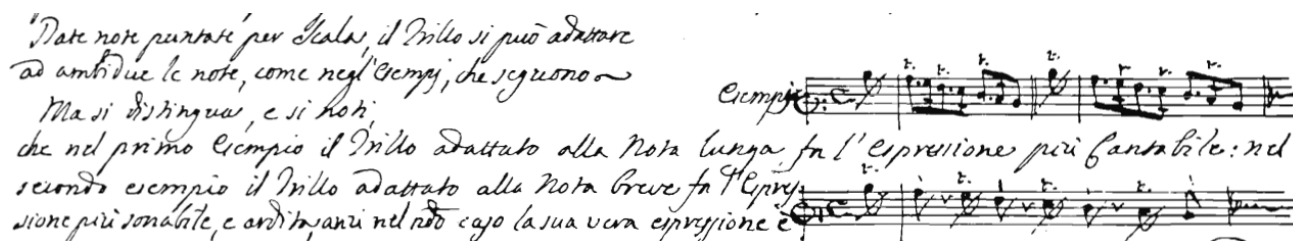 Date note puntate per Scala, il Trillo si può adattare
ad ambidue le note, come negl'esempj, che seguono
Esempj
Ma si distingua, e si noti,
che nel primo Esempio il Trillo adattato alla Nota lunga fa l'espressione più Cantabile: nel
secondo esempio il Trillo adattato alla Nota breve fa l'Espres-
sione più sonabile, e ardita, anzi nel caso la sua vera espressione è